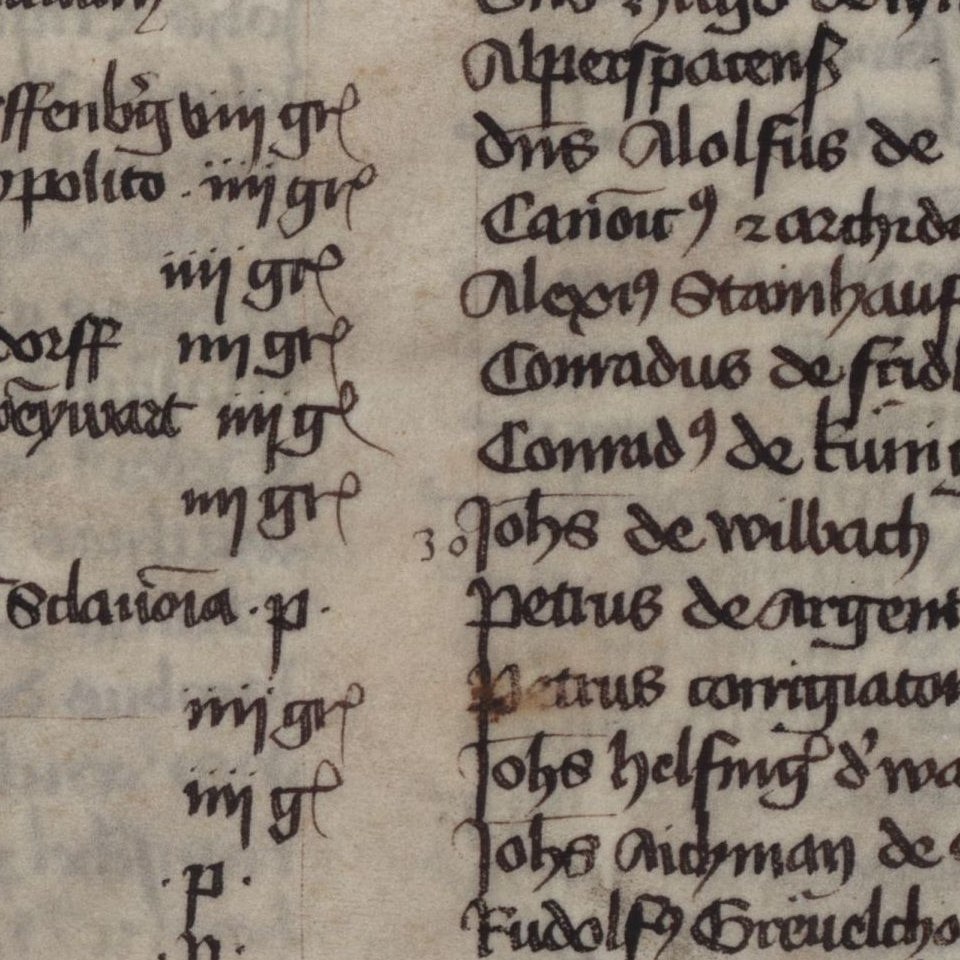 ffenbʼg viij grͥ
ypolito . iiij grͥ
iiij grͥ
dorff iiij grͥ
weywart iiij gͥ
iiij grͥ
Sclauōia . p .
iiij grͥ
iiij gͥ
. p .
. p .
Alperspacenß
dn̄s Alolfus de
Canōicꝰ ⁊ archid
Alexiꝰ Stainhauſ
Conradus de frid
Conradꝰ de kunig
30 Joh̄s de wilbach
Petrus de argent
Petrus corrigiator
Joh̄s helfingʼ dʼ wa
Joh̄s Aichman de
Rudolfꝰ Greuelcho